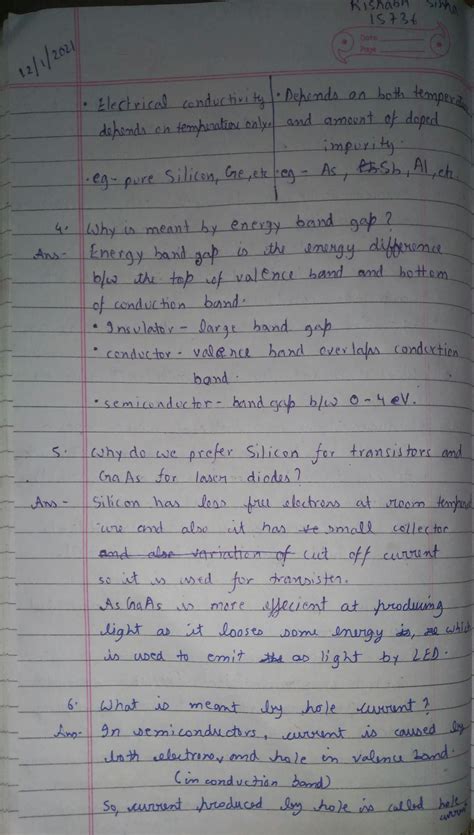 Rishabh Sinha
15736
12/1/2021
Date
Page
• Electrical conductivity
depends on temperature only.
• Depends on both temperat
and amount of doped
impurity.
• eg - pure Silicon, Ge, etc
eg - As, Sb, Al, etc.
4. Why is meant by energy band gap?
Ans - Energy band gap is the energy difference
b/w the top of valence band and bottom
of conduction band.
• Insulator - large band gap
• conductor - valence band overlaps conduction
band.
• semiconductor - band gap b/w 0 - 4 eV.
5. Why do we prefer Silicon for transistors and
GaAs for laser diodes?
Ans - Silicon has less free electrons at room temperat
ure and also it has small collector
and also variation of cut off current
so it is used for transister.
As GaAs is more effecient at producing
light as it looses some energy which
is used to emit as light by LED.
6. What is meant by hole current?
Ans - In semiconductors, current is caused by
both electrons and hole in valence band.
(in conduction band)
So, current produced by hole is called hole
current